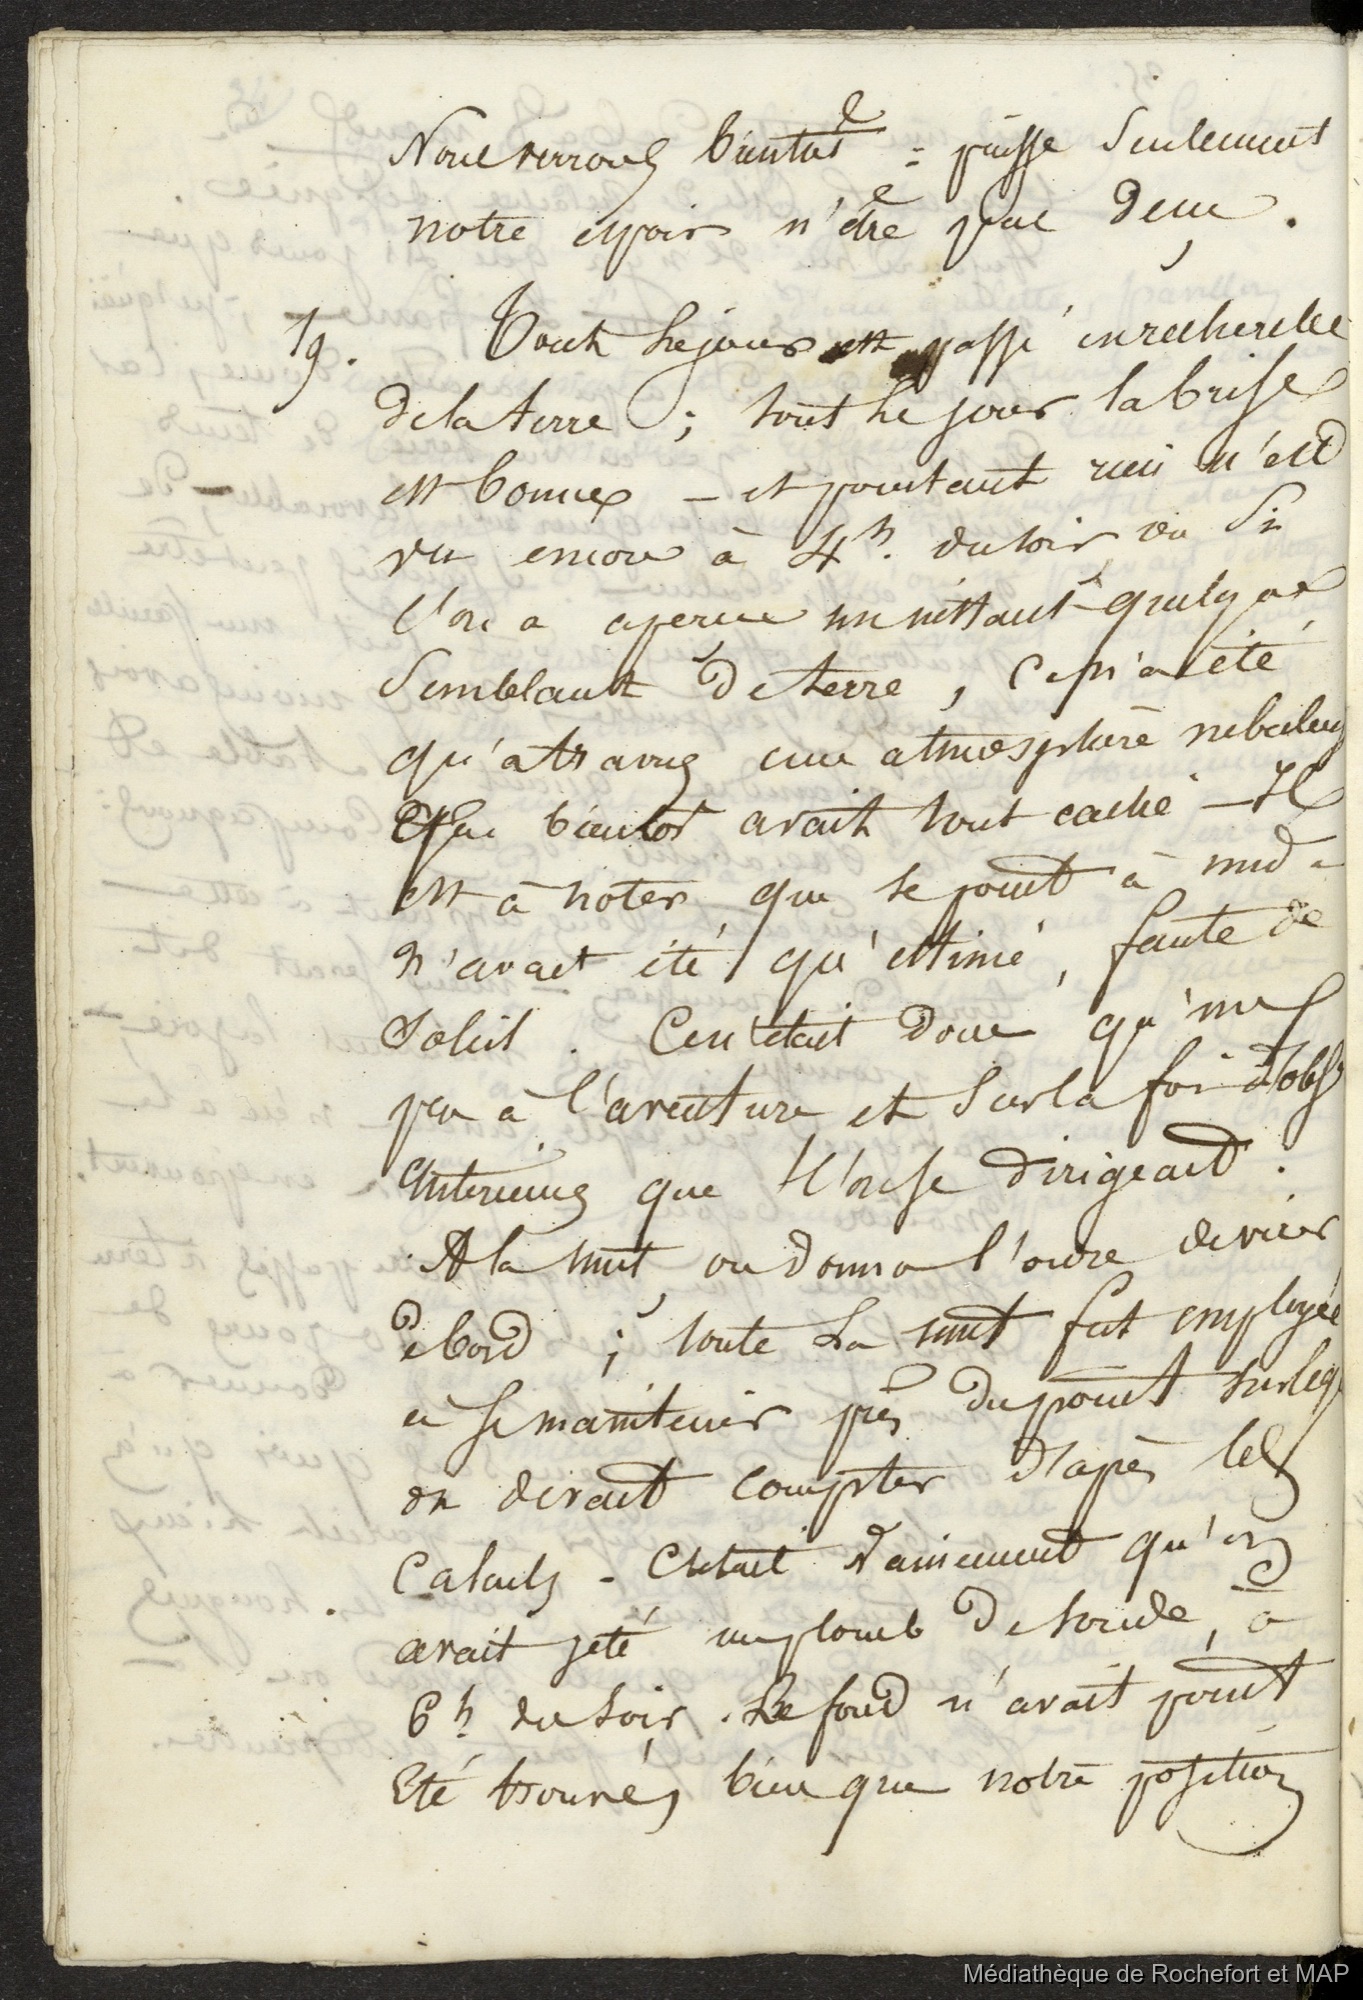 Nous verrons bientôt = puisse seulement
notre espoir n'être pas deçu.
19. Tout le jour est passé en recherche
de la terre ; tout le jour la brise
est bonne - et pourtant rien n'est
vu encore à 4h. du soir, ou si
l'on a aperçu un instant quelque
semblant de terre, ce n'a été
qu'a travers une atmosphère nebuleuse
qui bientôt avait tout caché - Il
est à noter que le point à midi
n'avait été qu'estimé, faute de
soleil. Ce n'était donc qu'un
peu à l'aventure et sur la foi d'obs
anterieures que l'on se dirigeait.
A la nuit on donna l'ordre de virer
de bord ; toute la nuit fut employée
à se maintenir près du point sur leq
on devait compter d'après les
calculs - C'était vainement qu'on
avait jeté un plomb de sonde, à
6h. du soir. Le fond n'avait point
été trouvé, bien que notre position
Médiathèque de Rochefort et MAP